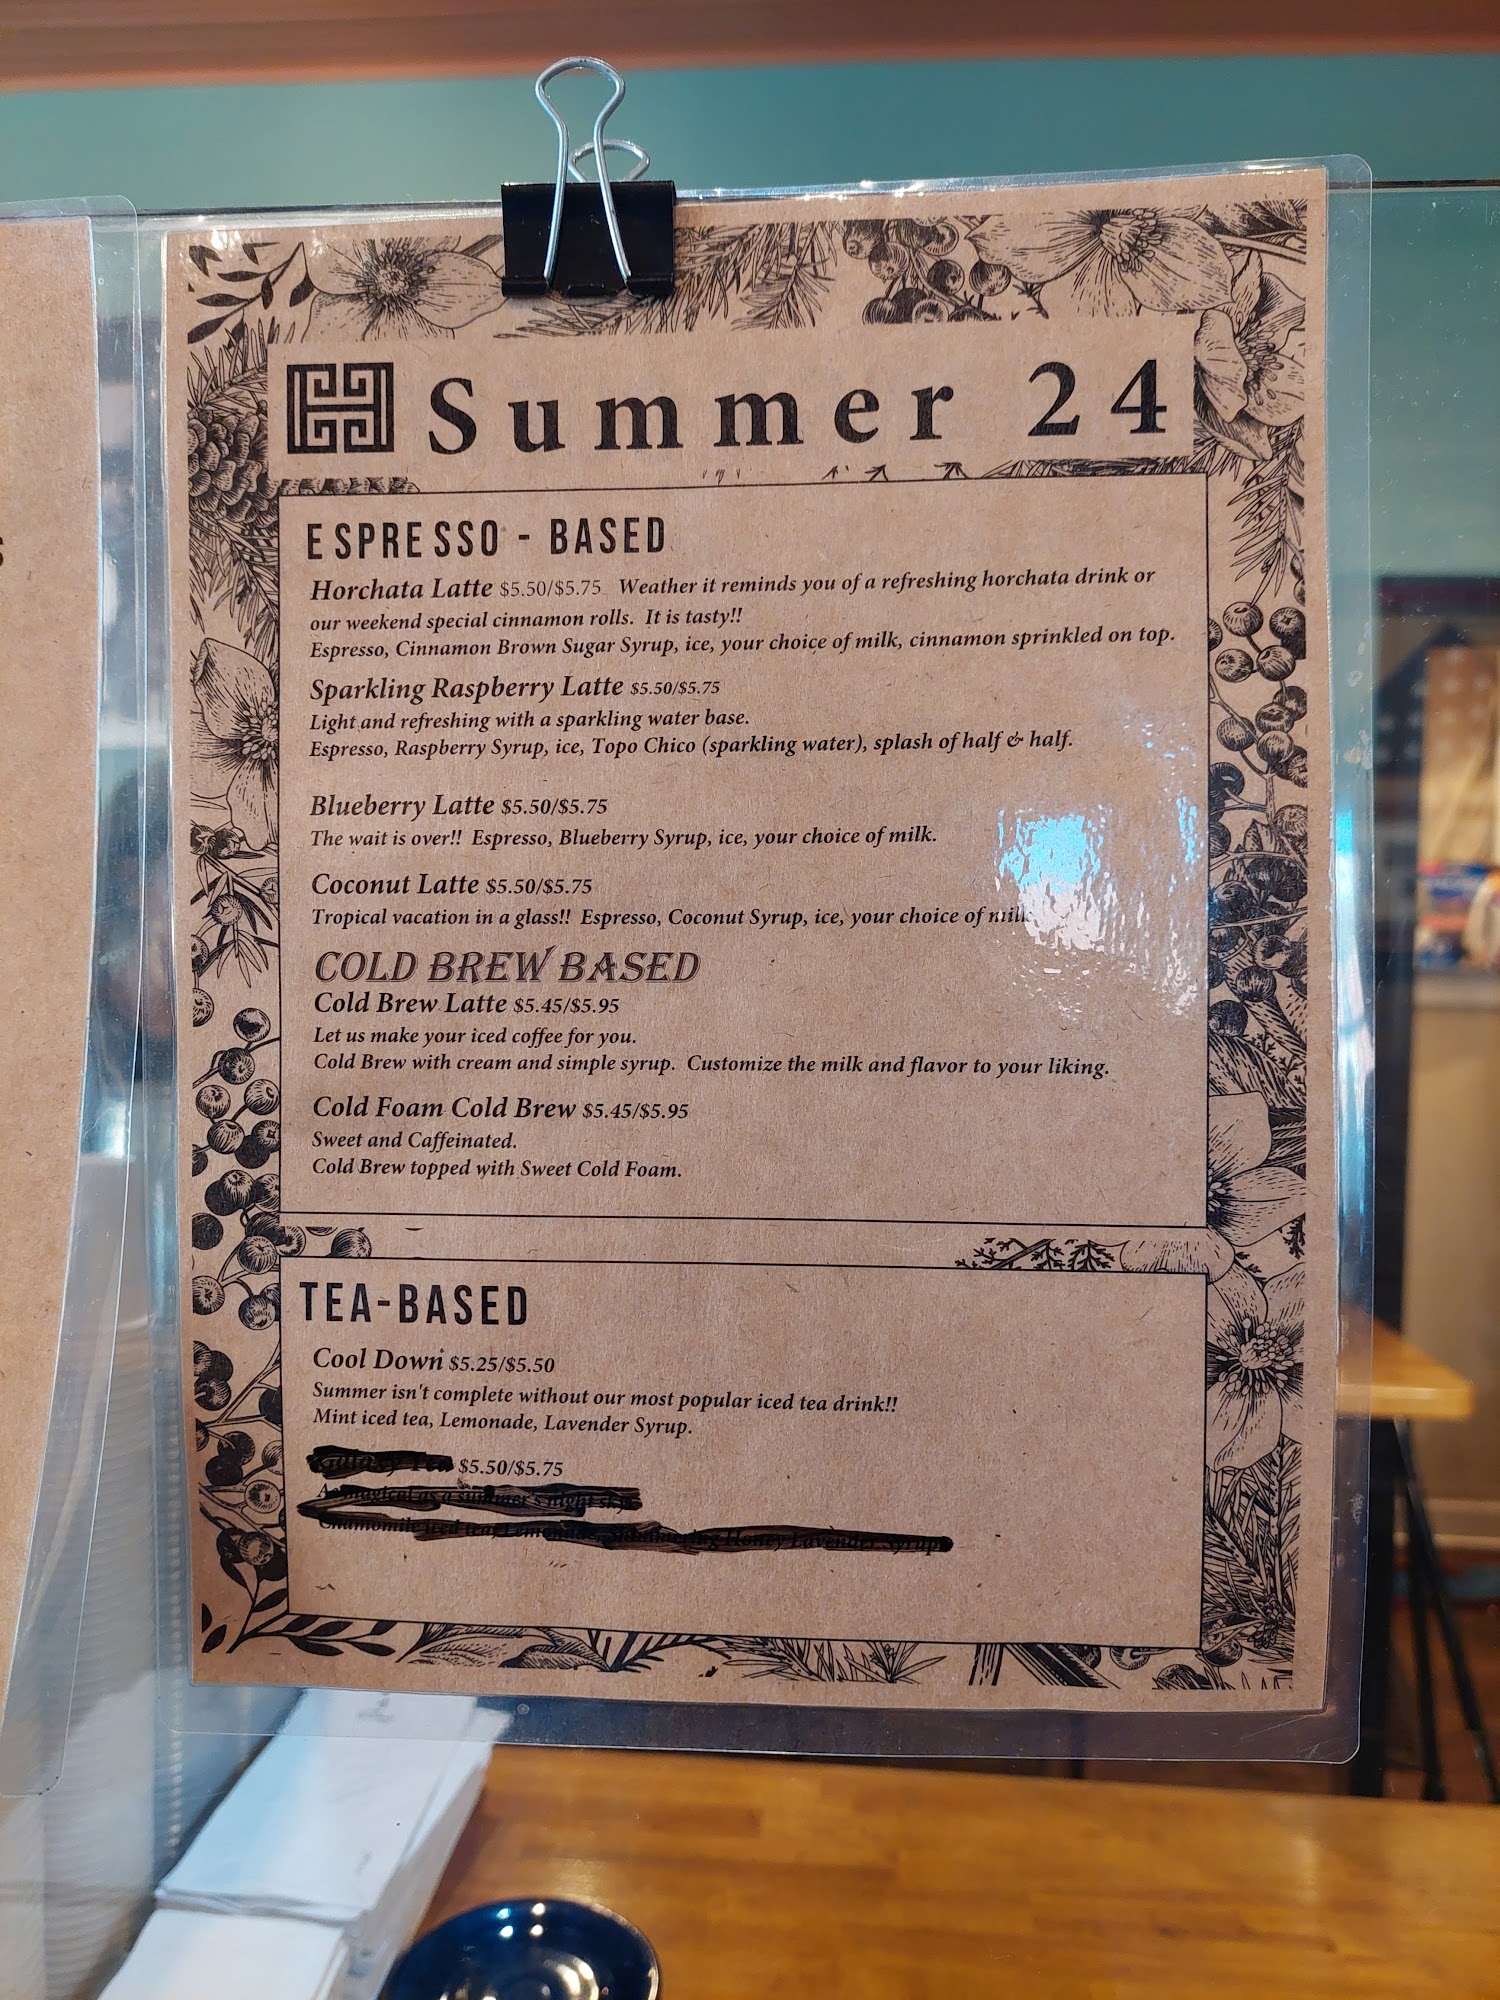 Summer 24
ESPRESSO - BASED
Horchata Latte $5.50/$5.75 Weather it reminds you of a refreshing horchata drink or
our weekend special cinnamon rolls. It is tasty!!
Espresso, Cinnamon Brown Sugar Syrup, ice, your choice of milk, cinnamon sprinkled on top.
Sparkling Raspberry Latte $5.50/$5.75
Light and refreshing with a sparkling water base.
Espresso, Raspberry Syrup, ice, Topo Chico (sparkling water), splash of half & half.
Blueberry Latte $5.50/$5.75
The wait is over!! Espresso, Blueberry Syrup, ice, your choice of milk.
Coconut Latte $5.50/$5.75
Tropical vacation in a glass!! Espresso, Coconut Syrup, ice, your choice of milk
COLD BREW BASED
Cold Brew Latte $5.45/$5.95
Let us make your iced coffee for you.
Cold Brew with cream and simple syrup. Customize the milk and flavor to your liking.
Cold Foam Cold Brew $5.45/$5.95
Sweet and Caffeinated.
Cold Brew topped with Sweet Cold Foam.
TEA-BASED
Cool Down $5.25/$5.50
Summer isn't complete without our most popular iced tea drink!!
Mint iced tea, Lemonade, Lavender Syrup.
Galaxy Tea $5.50/$5.75
As magical as a summer's night sky
Chamomile iced tea, Lemonade, Honey Lavender Syrup